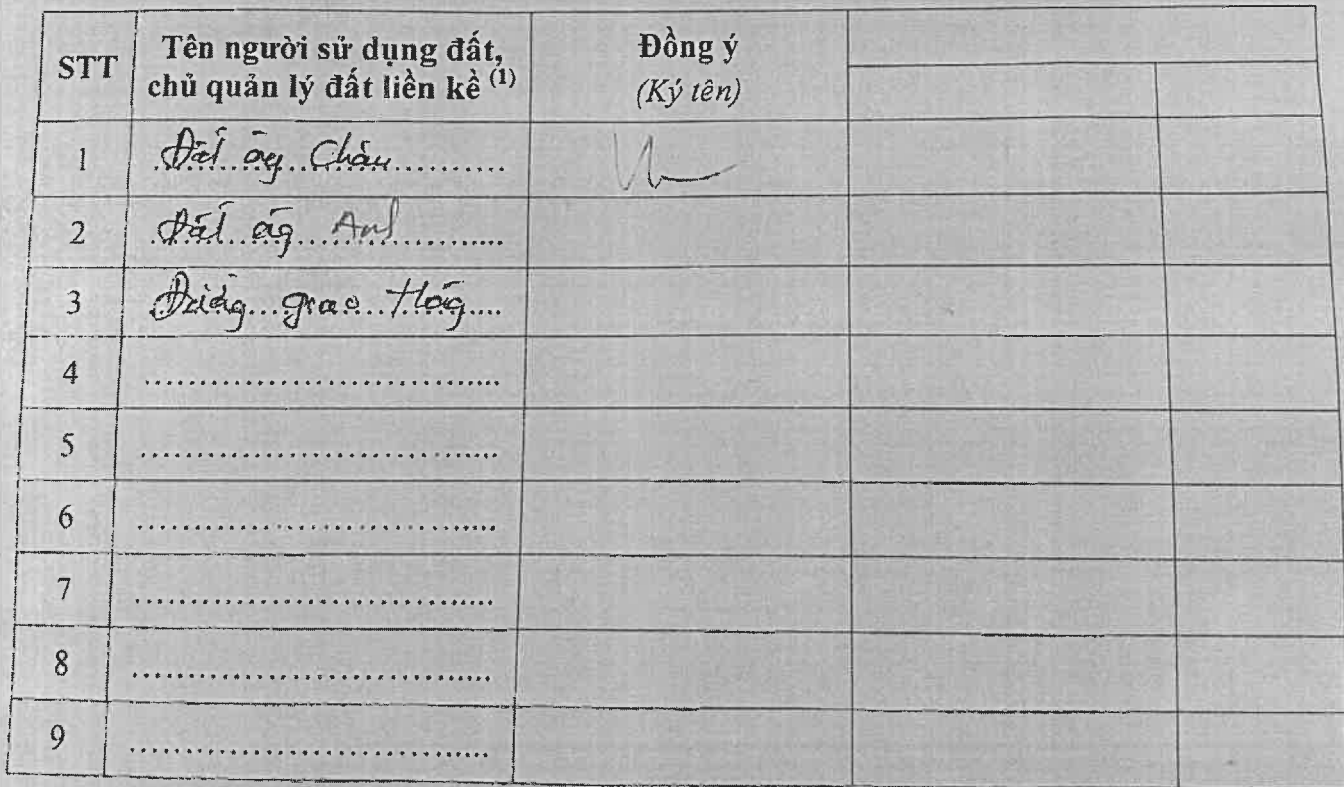 STT
Tên người sử dụng đất,
chủ quản lý đất liền kề (1)
Đồng ý
(Ký tên)
1 Đất ông Châu
2 Đất ông Anh
3 Đường giao thông
4
5
6
7
8
9